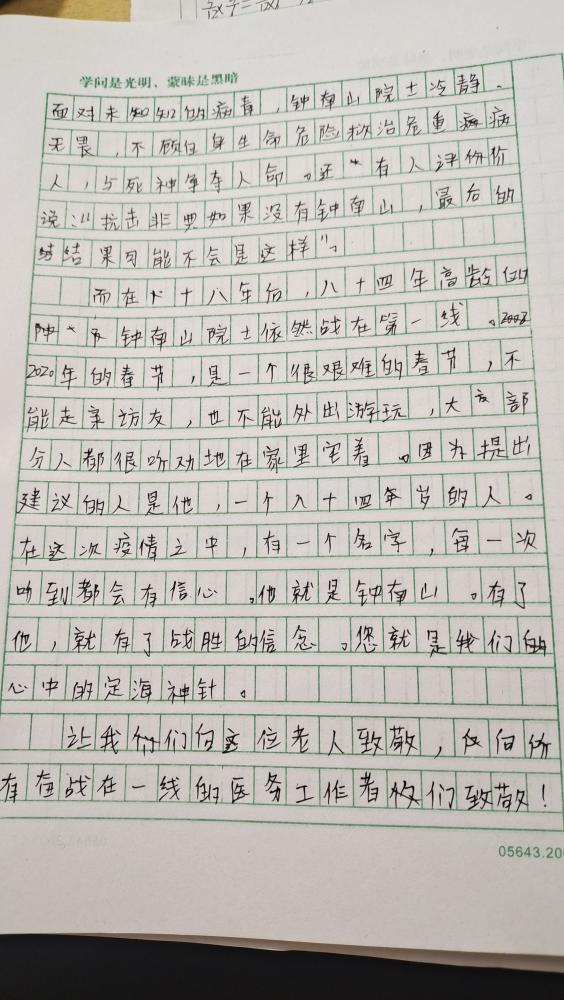 学问是光明，蒙昧是黑暗
面对未知的病毒，钟南山院士冷静、
无畏，不顾自身生命危险救治危重病
人，与死神争夺人命。还有人评价
说："抗击非典如果没有钟南山，最后的
结果可能不会是这样"。
而在十八年后，八十四年高龄的
钟南山院士依然战在第一线。
2020年的春节，是一个很艰难的春节，不
能走亲访友，也不能外出游玩，大部
分人都很听劝地在家里宅着。因为提出
建议的人是他，一个八十四岁的人。
在这次疫情之中，有一个名字，每一次
听到都会有信心。他就是钟南山。有了
他，就有了战胜的信念。您就是我们的
心中的定海神针。
让我们向这位老人致敬，向所
有奋战在一线的医务工作者们致敬！
05643.20